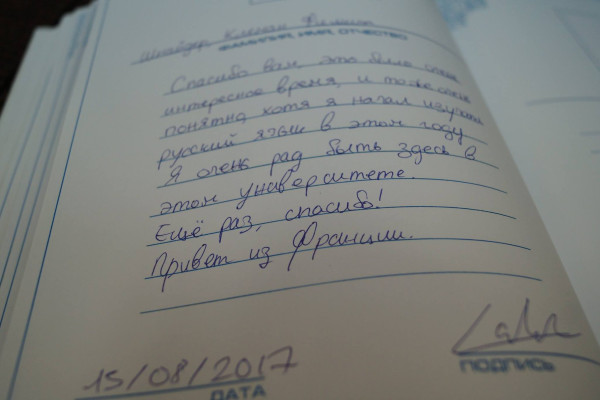 Шнайдер Клеман Филипп
ФАМИЛИЯ, ИМЯ, ОТЧЕСТВО
Спасибо вам это было очень
интересное время, и тоже очень
понятно хотя я начал изучать
русский язык в этом году
Я очень рад быть здесь в
этом университете.
Ещё раз, спасибо!
Привет из Франции.
15/08/2017
ДАТА
ПОДПИСЬ